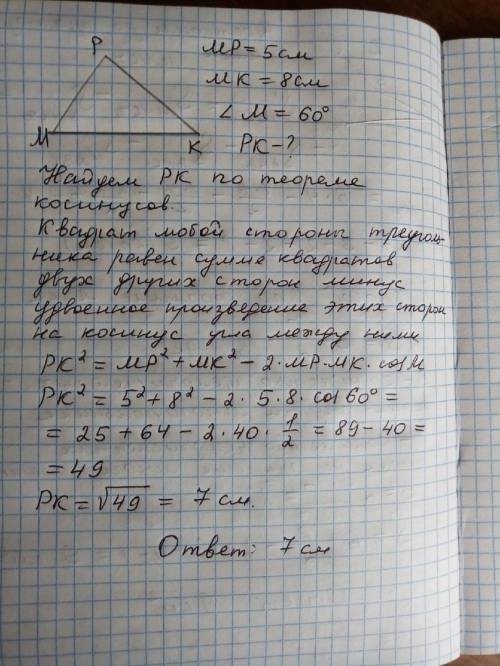 P
M
K
MP = 5 см
MK = 8 см
∠ M = 60°
PK - ?
Найдем PK по теореме
косинусов.
Квадрат любой стороны треуголь-
ника равен сумме квадратов
двух других сторон минус
удвоенное произведение этих сторон
на косинус угла между ними.
PK² = MP² + MK² - 2 · MP · MK · cos M
PK² = 5² + 8² - 2 · 5 · 8 · cos 60° =
= 25 + 64 - 2 · 40 · 1/2 = 89 - 40 =
= 49
PK = √49 = 7 см.
Ответ: 7 см